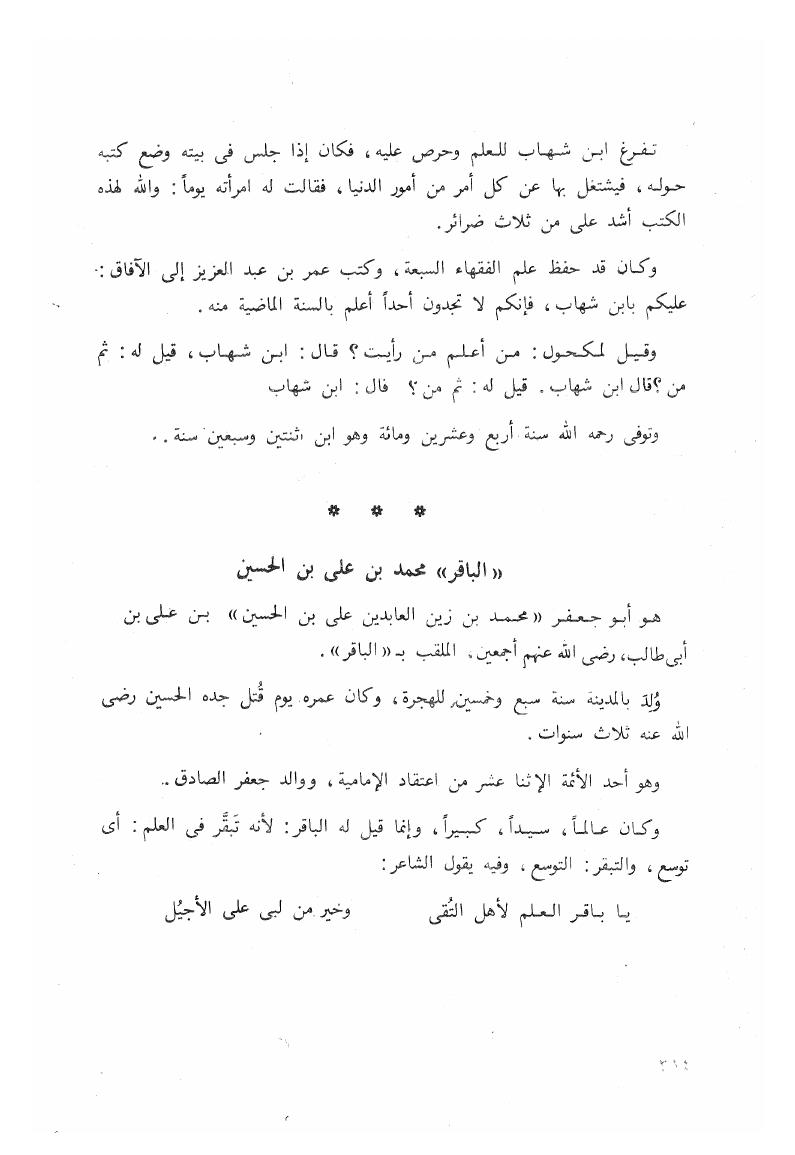 تفرغ ابن شهاب للعلم وحرص عليه، فكان إذا جلس فى بيته وضع كتبه
حوله، فيشتغل بها عن كل أمر من أمور الدنيا، فقالت له امرأته يوماً: والله لهذه
الكتب أشد على من ثلاث ضرائر.
وكان قد حفظ علم الفقهاء السبعة، وكتب عمر بن عبد العزيز إلى الآفاق:
عليكم بابن شهاب، فإنكم لا تجدون أحداً أعلم بالسنة الماضية منه.
وقيل لمكحول: من أعلم من رأيت؟ قال: ابن شهاب، قيل له: ثم
من؟ قال ابن شهاب. قيل له: ثم من؟ فال: ابن شهاب
وتوفى رحمه الله سنة أربع وعشرين ومائة وهو ابن اثنتين وسبعين سنة..
* * *
«الباقر» محمد بن على بن الحسين
هو أبو جعفر «محمد بن زين العابدين على بن الحسين» بن على بن
أبى طالب، رضى الله عنهم أجمعين. الملقب بـ «الباقر».
وُلِدَ بالمدينة سنة سبع وخمسين للهجرة، وكان عمره يوم قُتل جده الحسين رضى
الله عنه ثلاث سنوات.
وهو أحد الأئمة الإثنا عشر من اعتقاد الإمامية، ووالد جعفر الصادق.
وكان عالماً، سيداً، كبيراً، وإنما قيل له الباقر: لأنه تَبقَّر فى العلم: أى
توسع، والتبقر: التوسع، وفيه يقول الشاعر:
يا باقر العلم لأهل التُقى وخير من لبى على الأجيُل